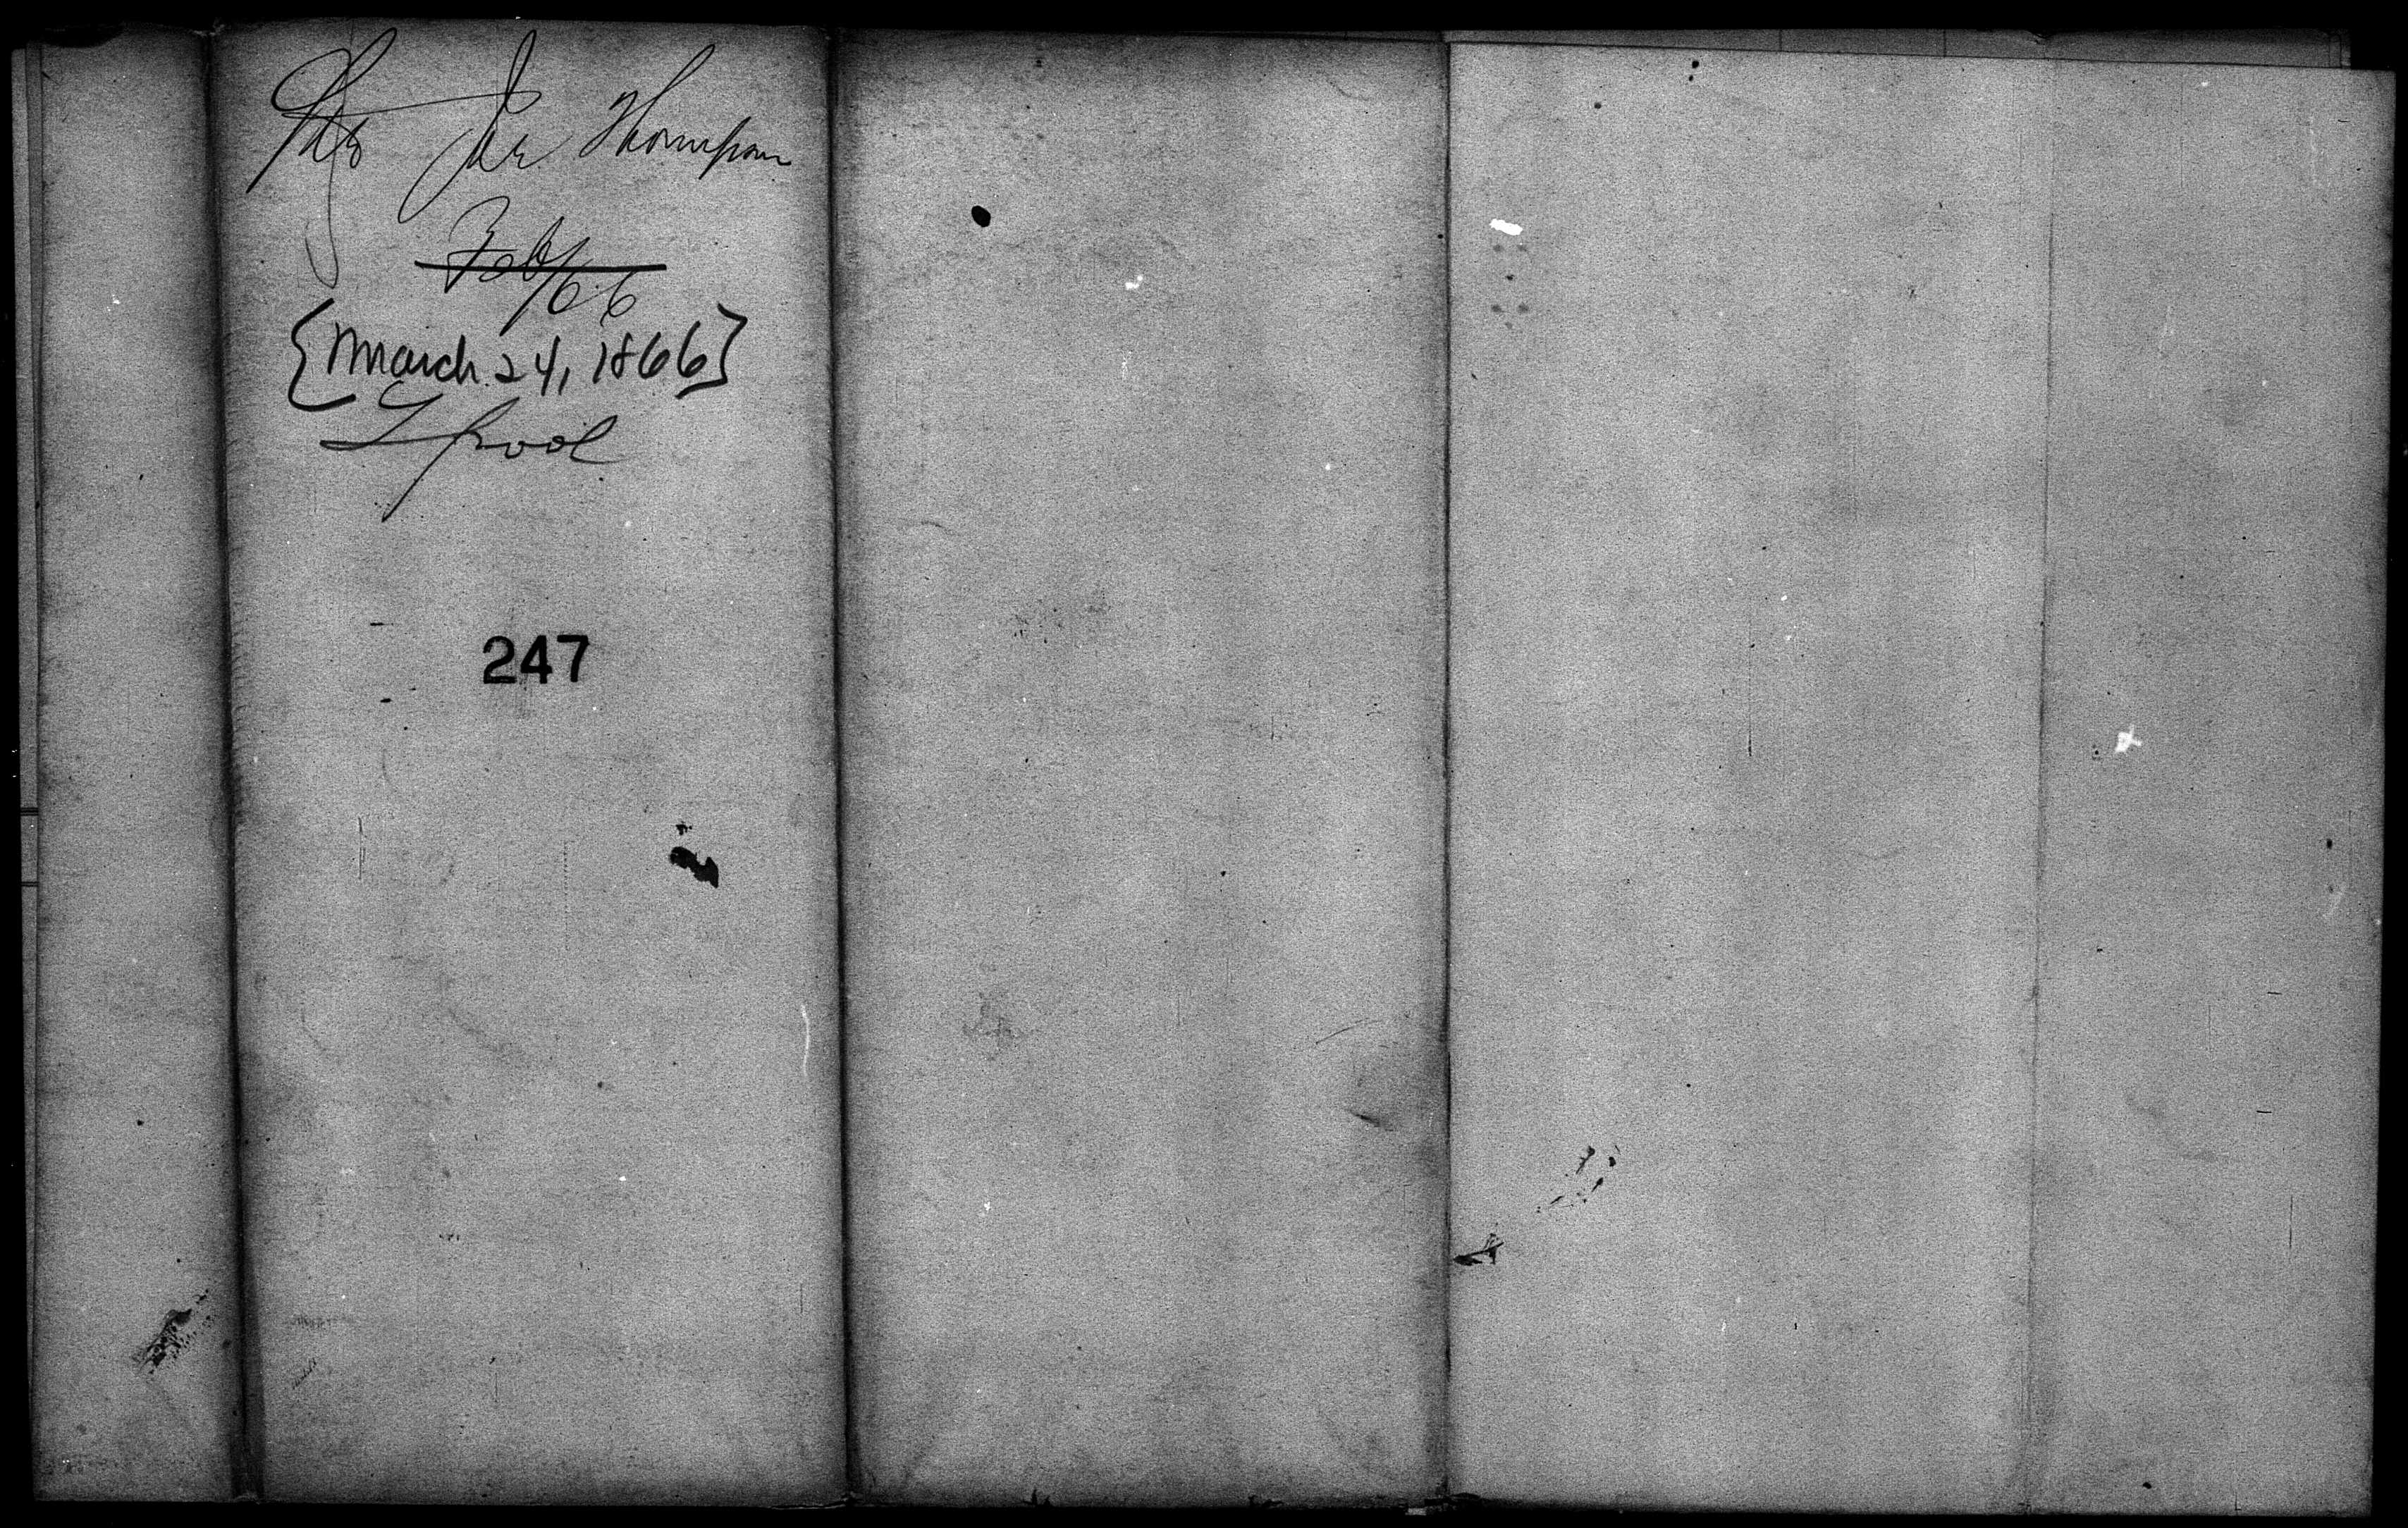 Ship Joe Thompson
Feb/66
{March 24, 1866}
Lpool
247